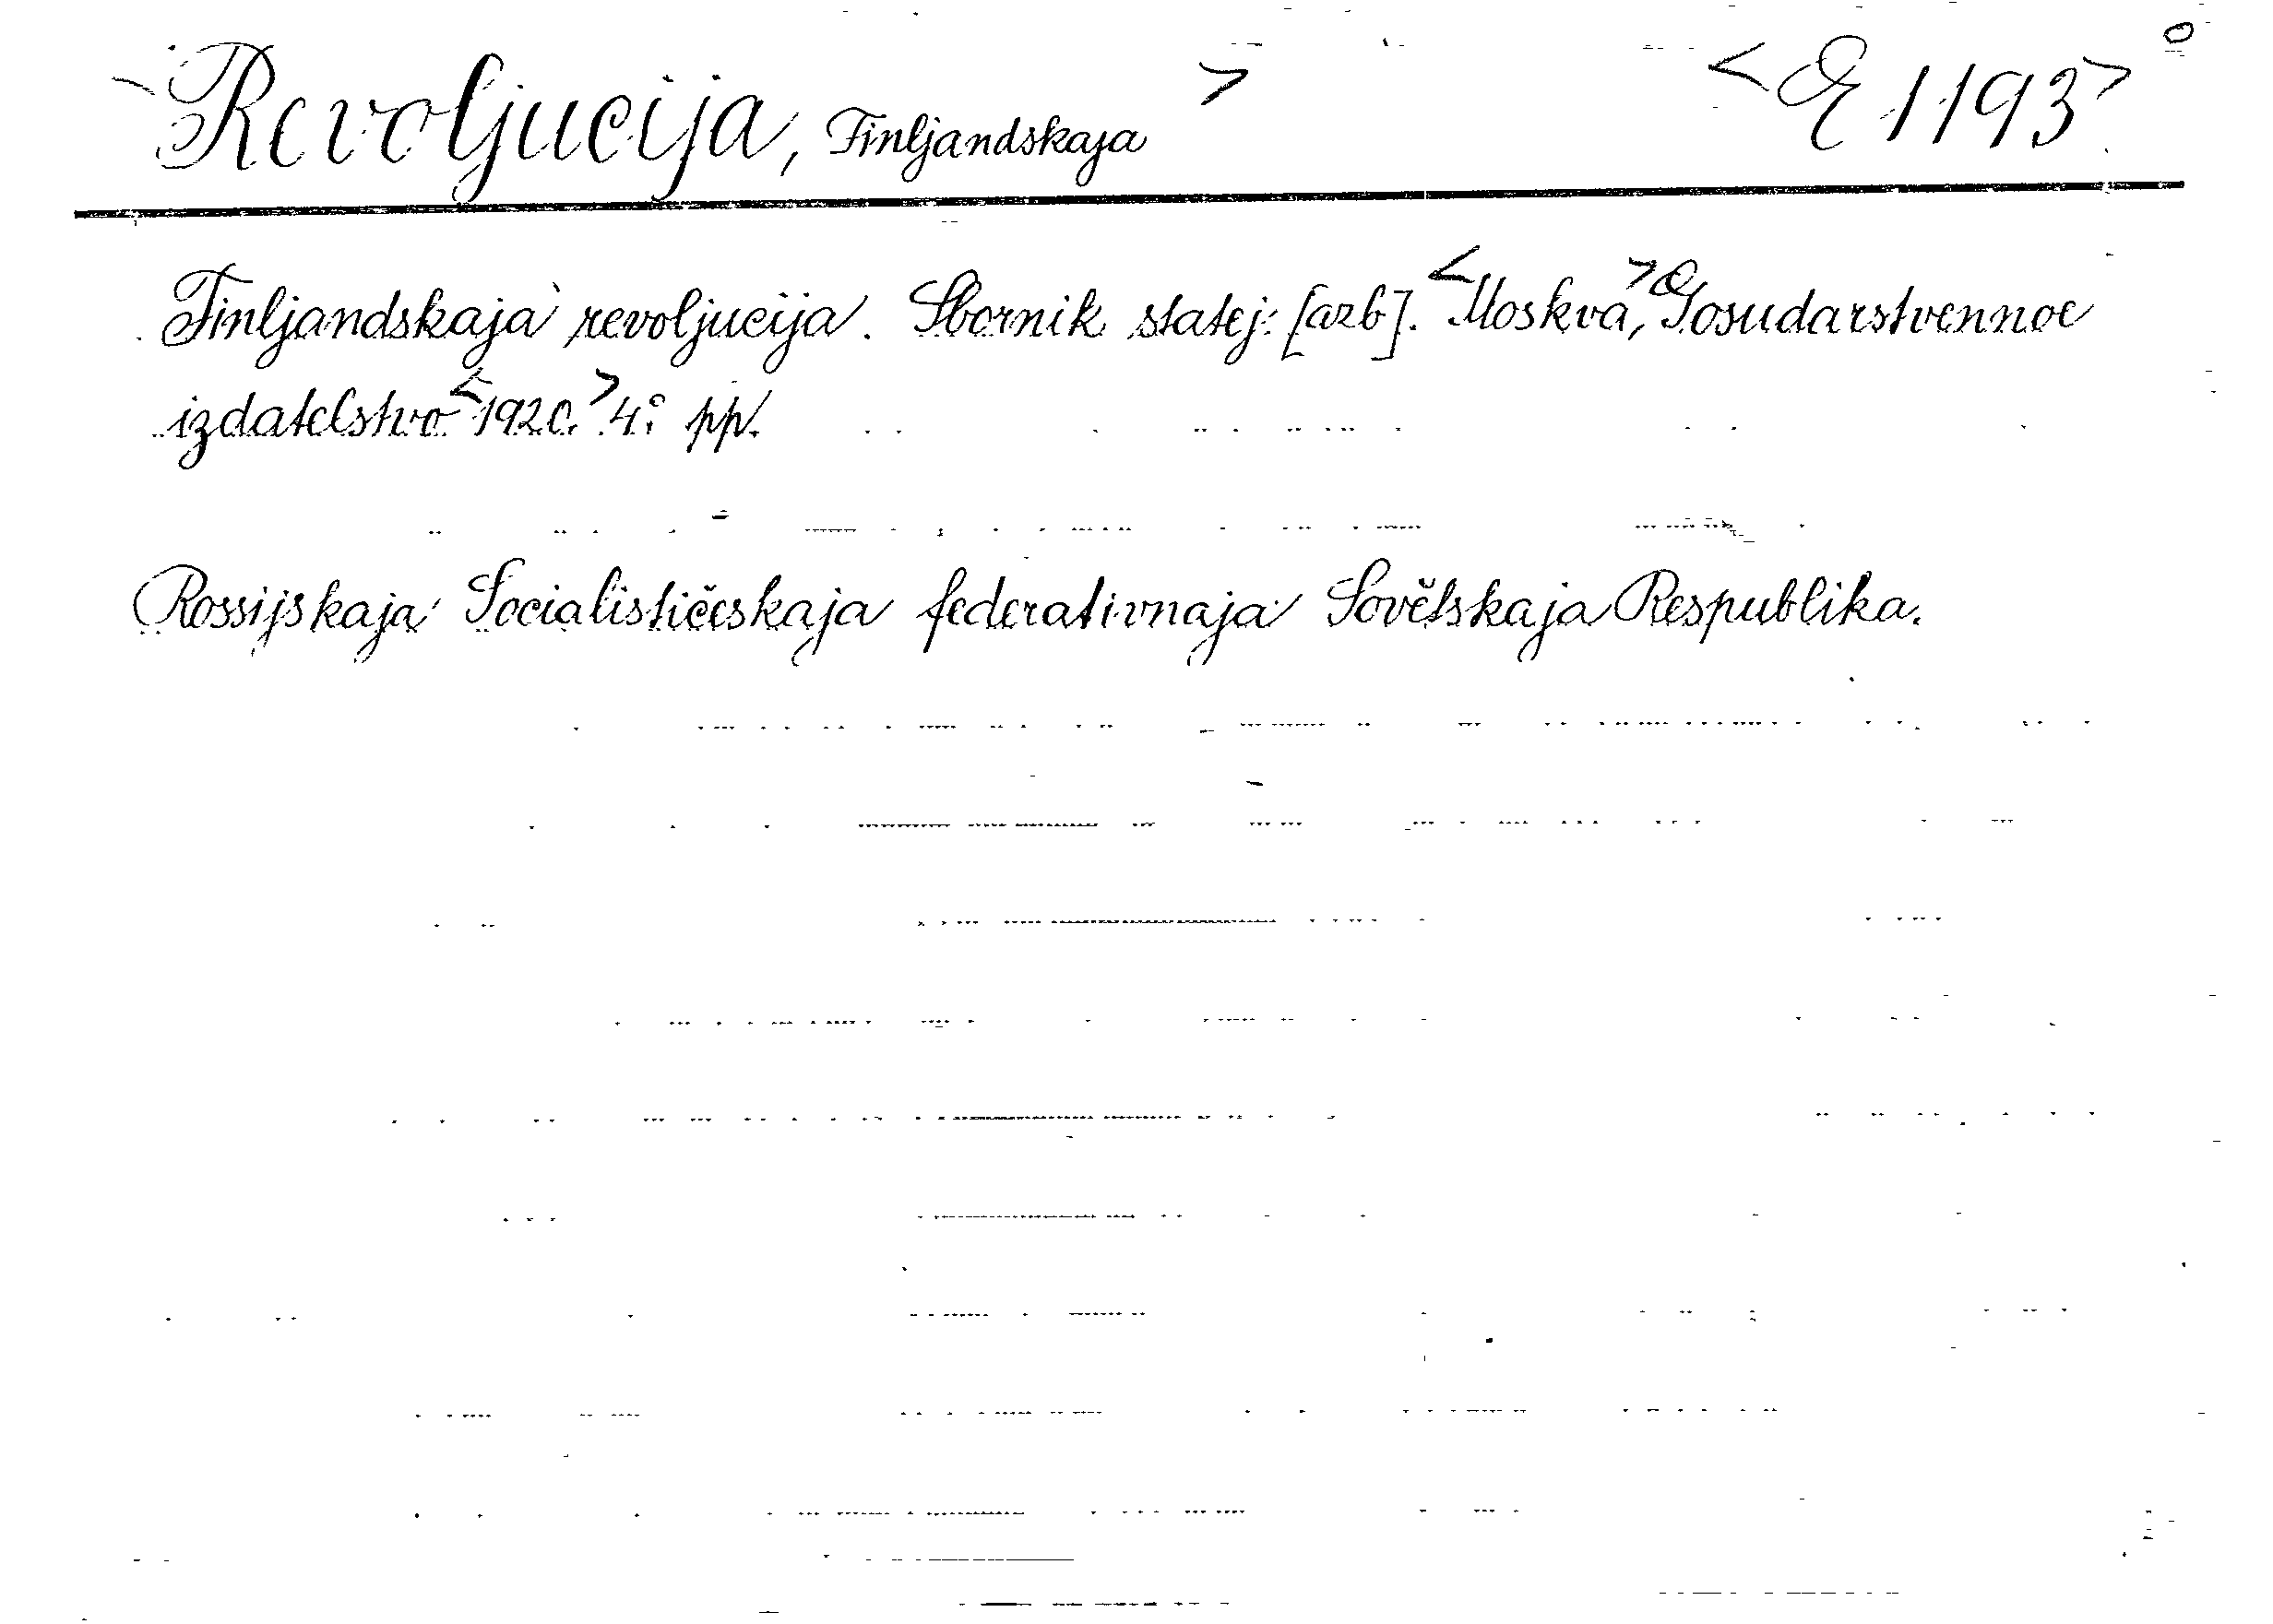 Revoljucija, Finljandskaja > <E 1193>
Finljandskaja revoljucija. Sbornik statej: [azb]. <Moskva,> Gosudarstvennoe
izdatelstvo <1920.> 4° pp.
Rossijskaja Socialističeskaja federativnaja Sovětskaja Respublika.